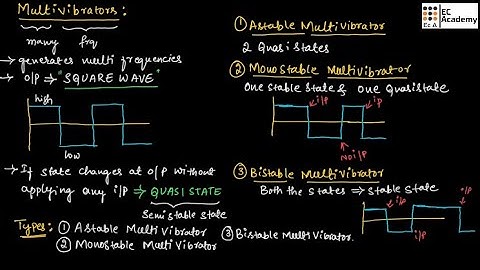 Multivibrators:
many
frq
→ generates multi frequencies
→ O/P ⇒ "SQUARE WAVE"
high
low
→ If state changes at O/P without
applying any i/P ⇒ QUASI STATE
Semi stable state
Types: ① Astable Multivibrator
② Monostable Multivibrator
③ Bistable Multivibrator.
EC
Academy
Ec A
① Astable Multivibrator
2 Quasi States
② Monostable Multivibrator
One Stable State & one Quasi state
i/P
iP
No i/P
③ Bistable Multivibrator
Both the States ⇒ Stable State
i/P
i/P
i/P